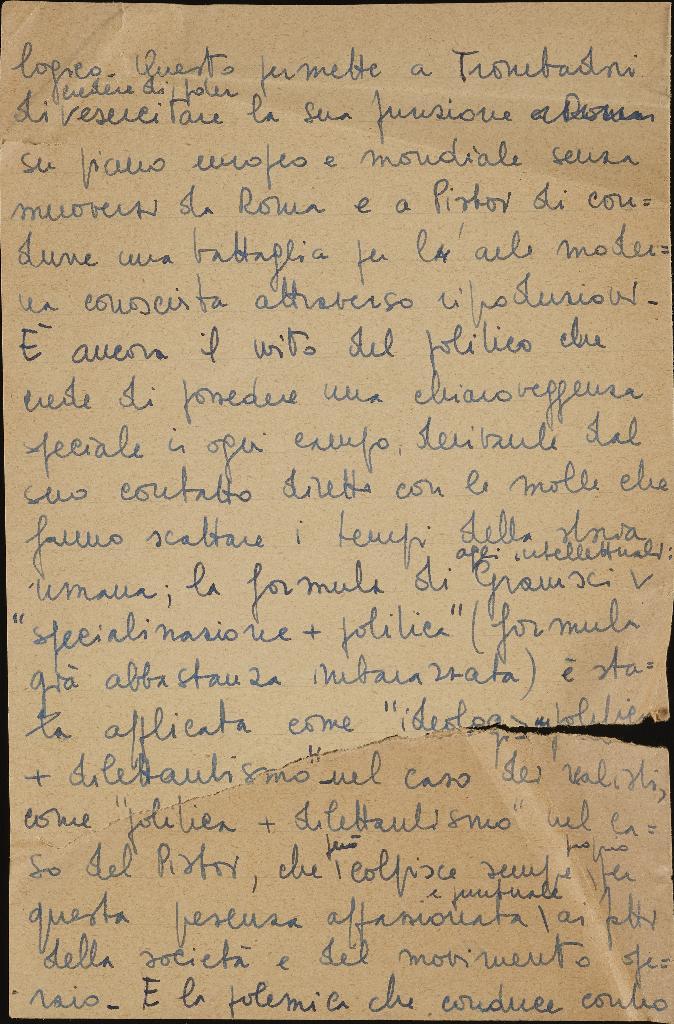 logico. Questo permette a Trombadori
credere di poter
di esercitare la sua funzione a Roma
su piano europeo e mondiale senza
muoversi da Roma e a Pistoi di con=
durre una battaglia per l'arte moder=
na conosciuta attraverso riproduzioni.
È ancora il mito del politico che
crede di possedere una chiaroveggenza
speciale in ogni campo, derivante dal
suo contatto diretto con le molle che
fanno scattare i tempi della storia
agli intellettuali:
umana; la formula di Gramsci V
"specializzazione + politica" (formula
già abbastanza imbarazzata) è sta=
ta applicata come "ideologia politica
+ dilettantismo" nel caso dei realisti,
come "politica + dilettantismo" nel ca=
so del Pistoi, che però colpisce sempre proprio per
questa presenza appassionata e puntuale ai fatti
della società e del movimento ope=
raio. È la polemica che conduce contro